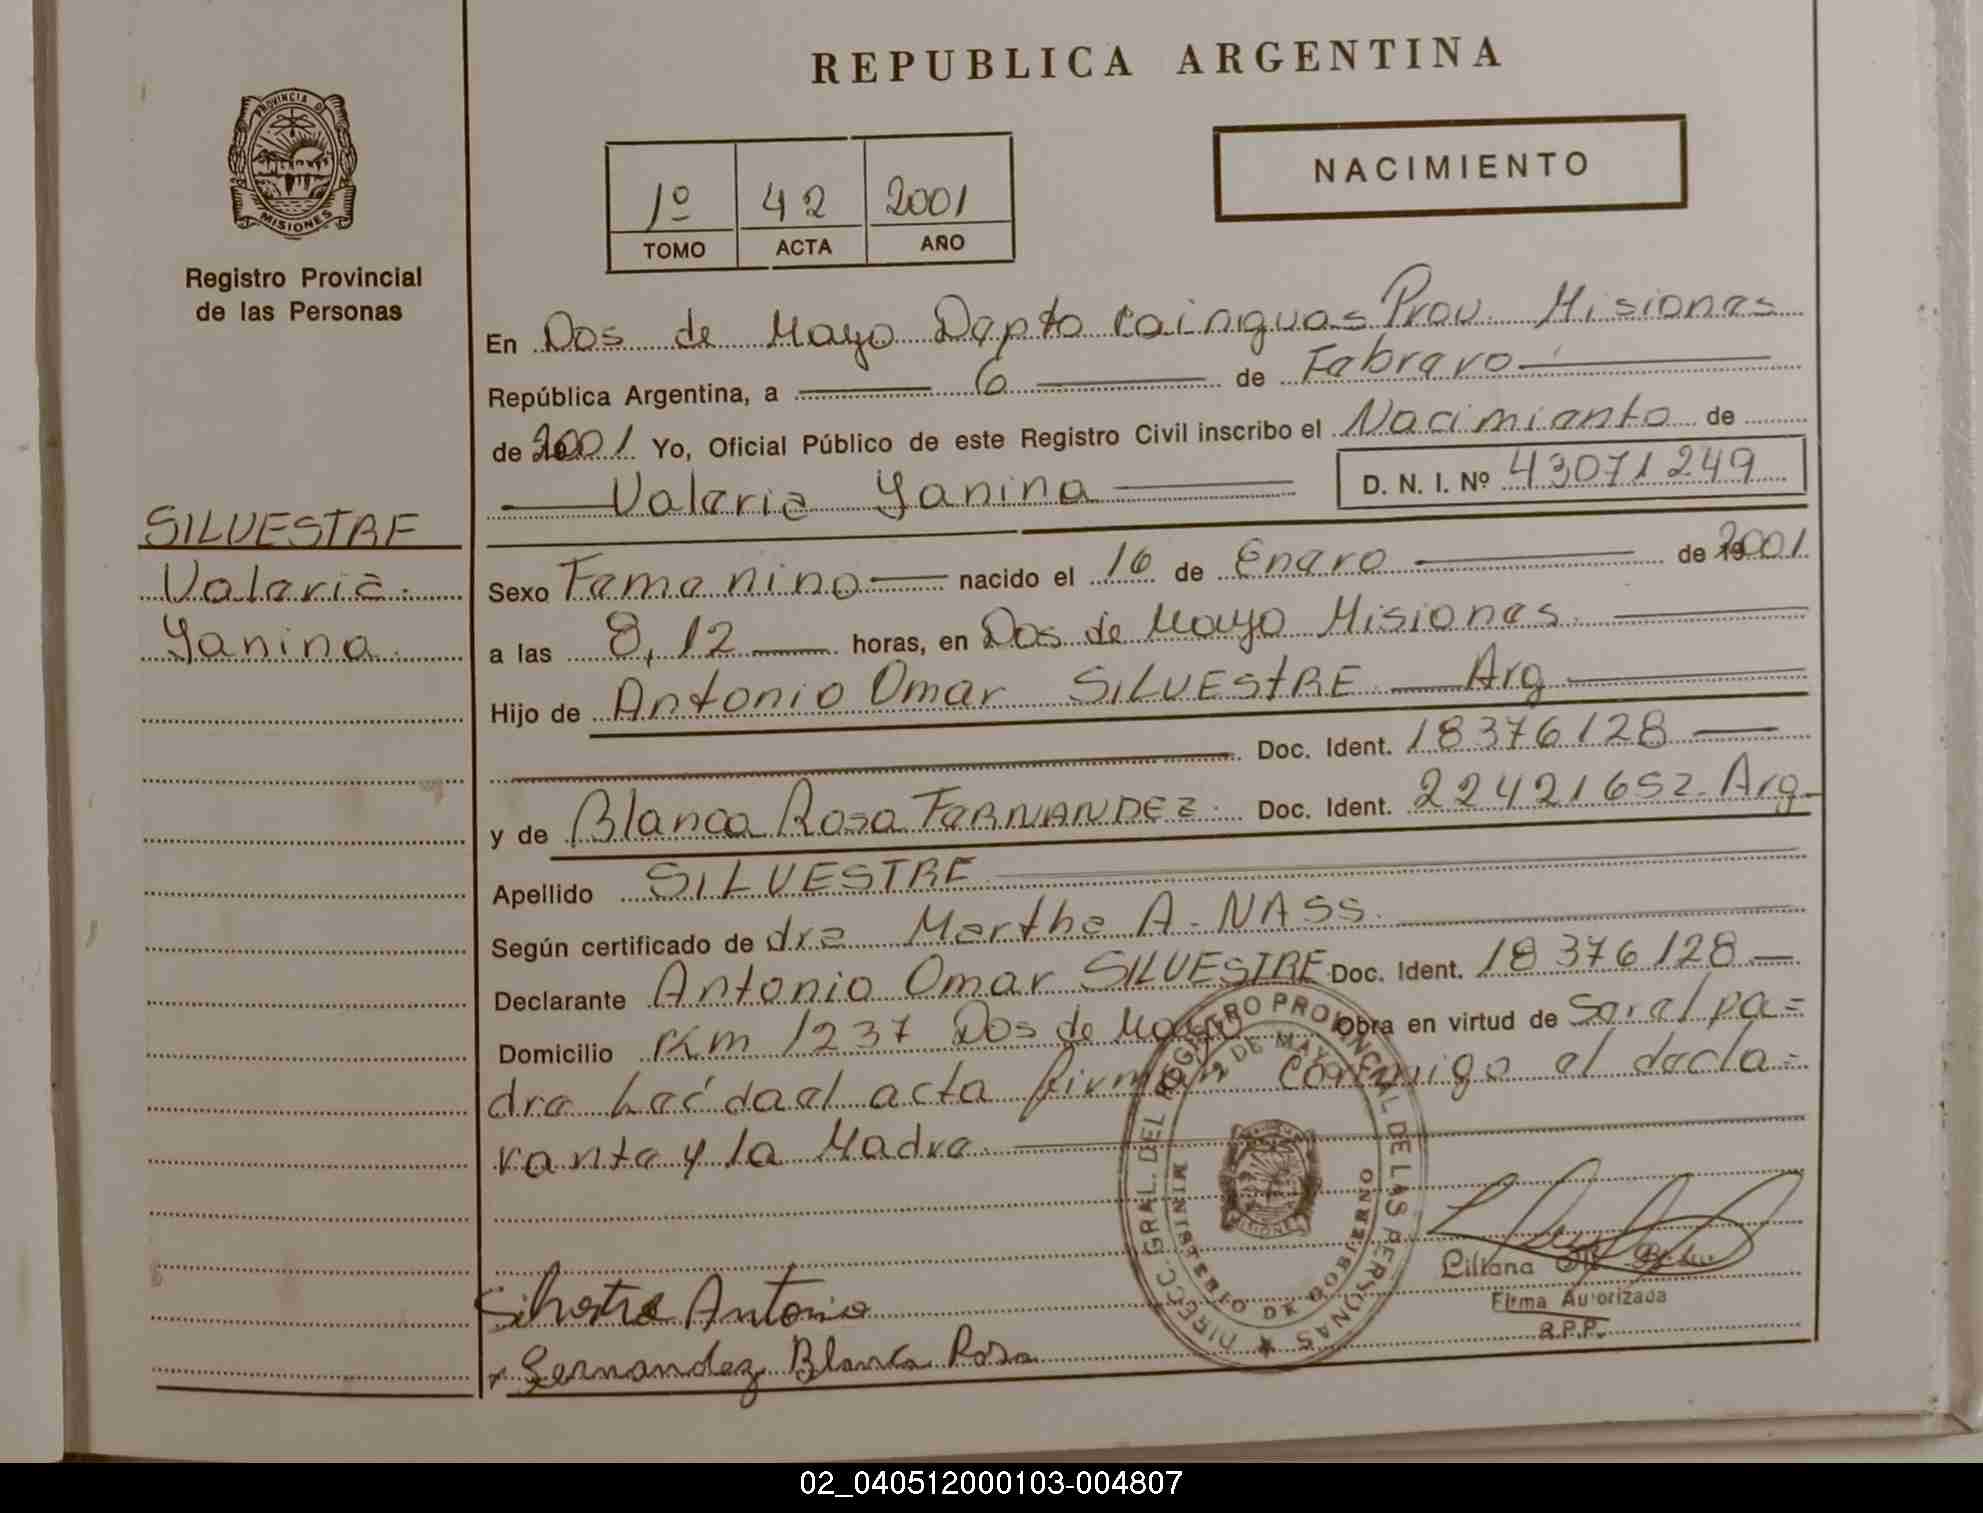 REPUBLICA ARGENTINA
PROVINCIA DE
MISIONES
Registro Provincial
de las Personas
1º 42 2001
TOMO ACTA AÑO
NACIMIENTO
En Dos de Mayo Depto Cainguas Prov. Misiones
República Argentina, a 6 de Febrero
de 2001 Yo, Oficial Público de este Registro Civil inscribo el Nacimiento de
Valeria Yanina D. N. I. Nº 43071249
SILVESTRE
Valeria
Yanina
Sexo Femenino nacido el 16 de Enero de 2001
a las 8,12 horas, en Dos de Mayo Misiones
Hijo de Antonio Omar SILVESTRE Arg
Doc. Ident. 18376128
y de Blanca Rosa FERNANDEZ Doc. Ident. 22421652 Arg
Apellido SILVESTRE
Según certificado de dra Marthe A. NASS
Declarante Antonio Omar SILVESTRE Doc. Ident. 18376128
Domicilio Km 1237 Dos de Mayo Obra en virtud de ser el pa=
dre Leída el acta firman conmigo el decla=
rante y la Madre
DIREC. GRAL. DEL REGISTRO PROVINCIAL DE LAS PERSONAS
2 DE MAYO
MINISTERIO DE GOBIERNO
MISIONES
Liliana
Firma Autorizada
R.P.P.
Silvestre Antonio
Fernandez Blanca Rosa
02_040512000103-004807